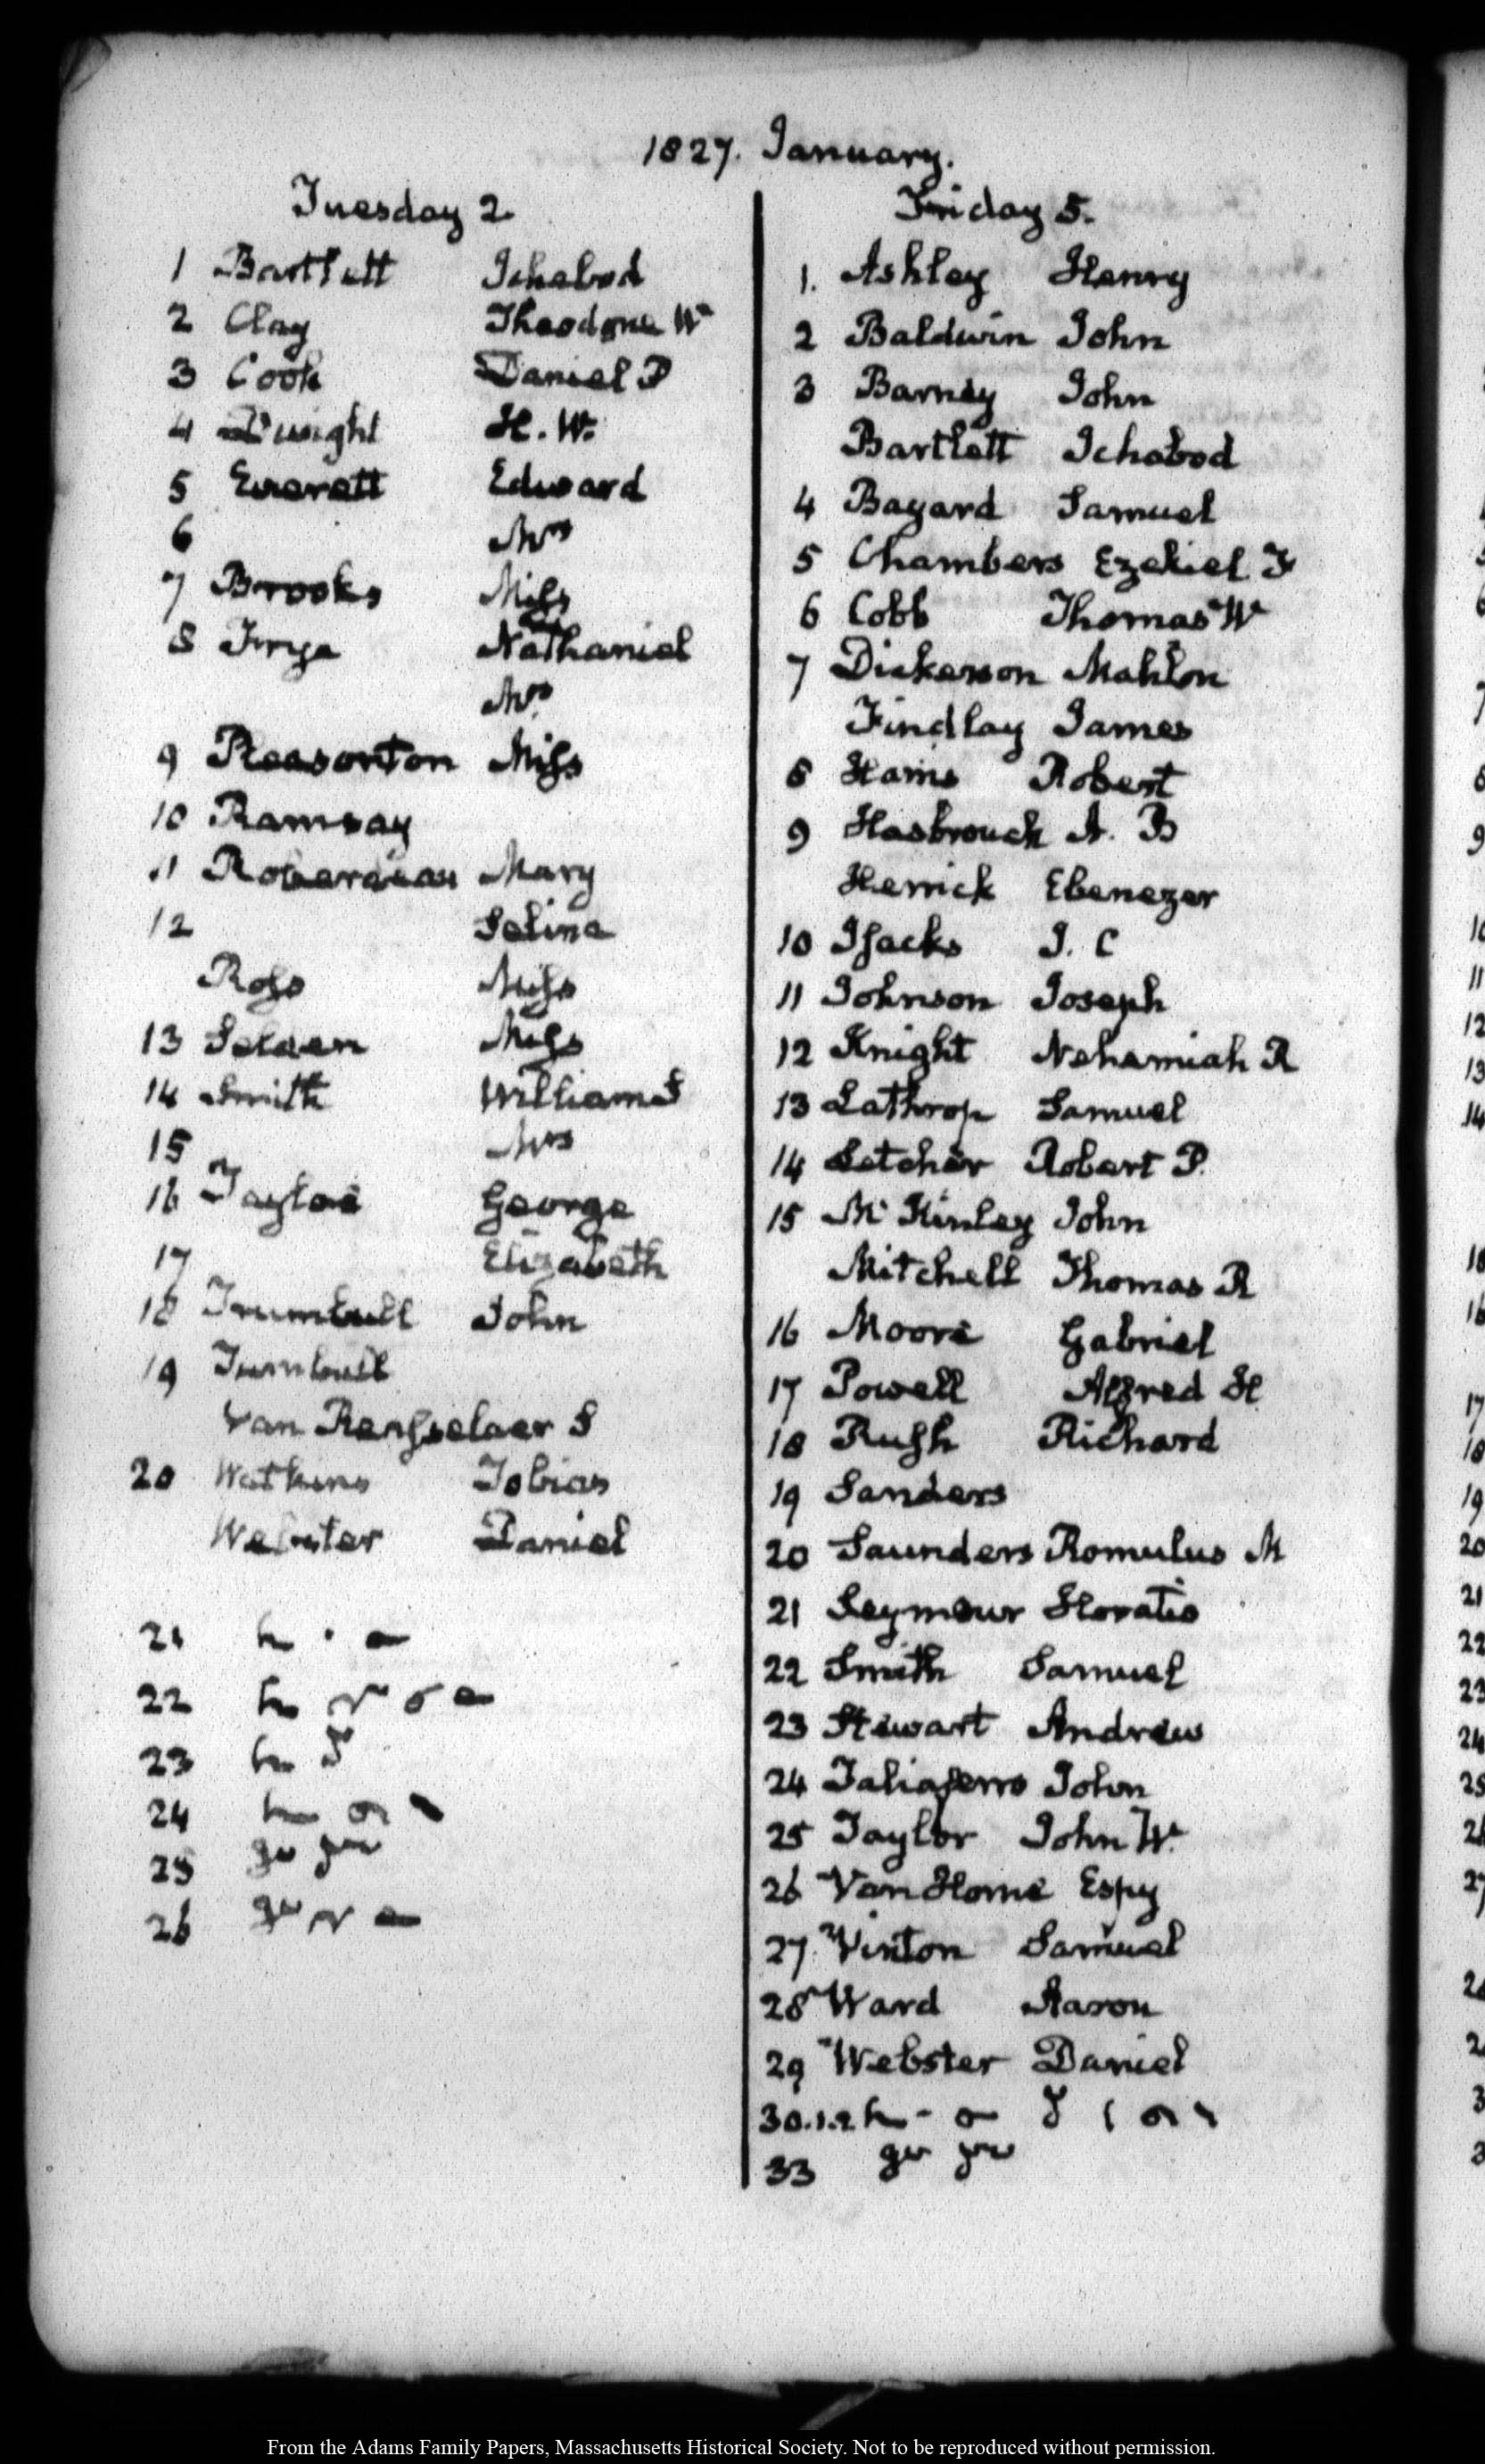 1827. January.
Tuesday 2.
1 Bartlett Ichabod
2 Clay Theodore W
3 Cook Daniel P
4 Dwight H. W.
5 Everett Edward
6 Mrs
7 Brooks Miss
8 Frye Nathaniel
Mrs.
9 Pleasonton Miss
10 Ramsay
11 Mary
12 Selina
Ross Miss
13 Selden Miss
14 Smith William S
15 Mrs
16 Tayloe George
17 Elizabeth
18 Trumbull John
19 Turnbull
Van Rensselaer S
20 Watkins Tobias
Webster Daniel
21
22
23
24
25
26
Friday 5.
1. Ashley Henry
2 Baldwin John
3 Barney John
Bartlett Ichabod
4 Bayard Samuel
5 Chambers Ezekiel F
6 Cobb Thomas W
7 Dickerson Mahlon
Findlay James
8 Harris Robert
9 Hasbrouck A. B
Herrick Ebenezer
10 Isacks J. C
11 Johnson Joseph
12 Knight Nehemiah R
13 Lathrop Samuel
14 Letcher Robert P.
15 Mc Kinley John
Mitchell Thomas R
16 Moore Gabriel
17 Powell Alfred H
18 Rush Richard
19 Sanders
20 Saunders Romulus M
21 Seymour Horatio
22 Smith Samuel
23 Stewart Andrew
24 Taliaferro John
25 Taylor John W.
26 Van Horne Espy
27. Vinton Samuel
28 Ward Aaron
29 Webster Daniel
30.1.2
33
From the Adams Family Papers, Massachusetts Historical Society. Not to be reproduced without permission.